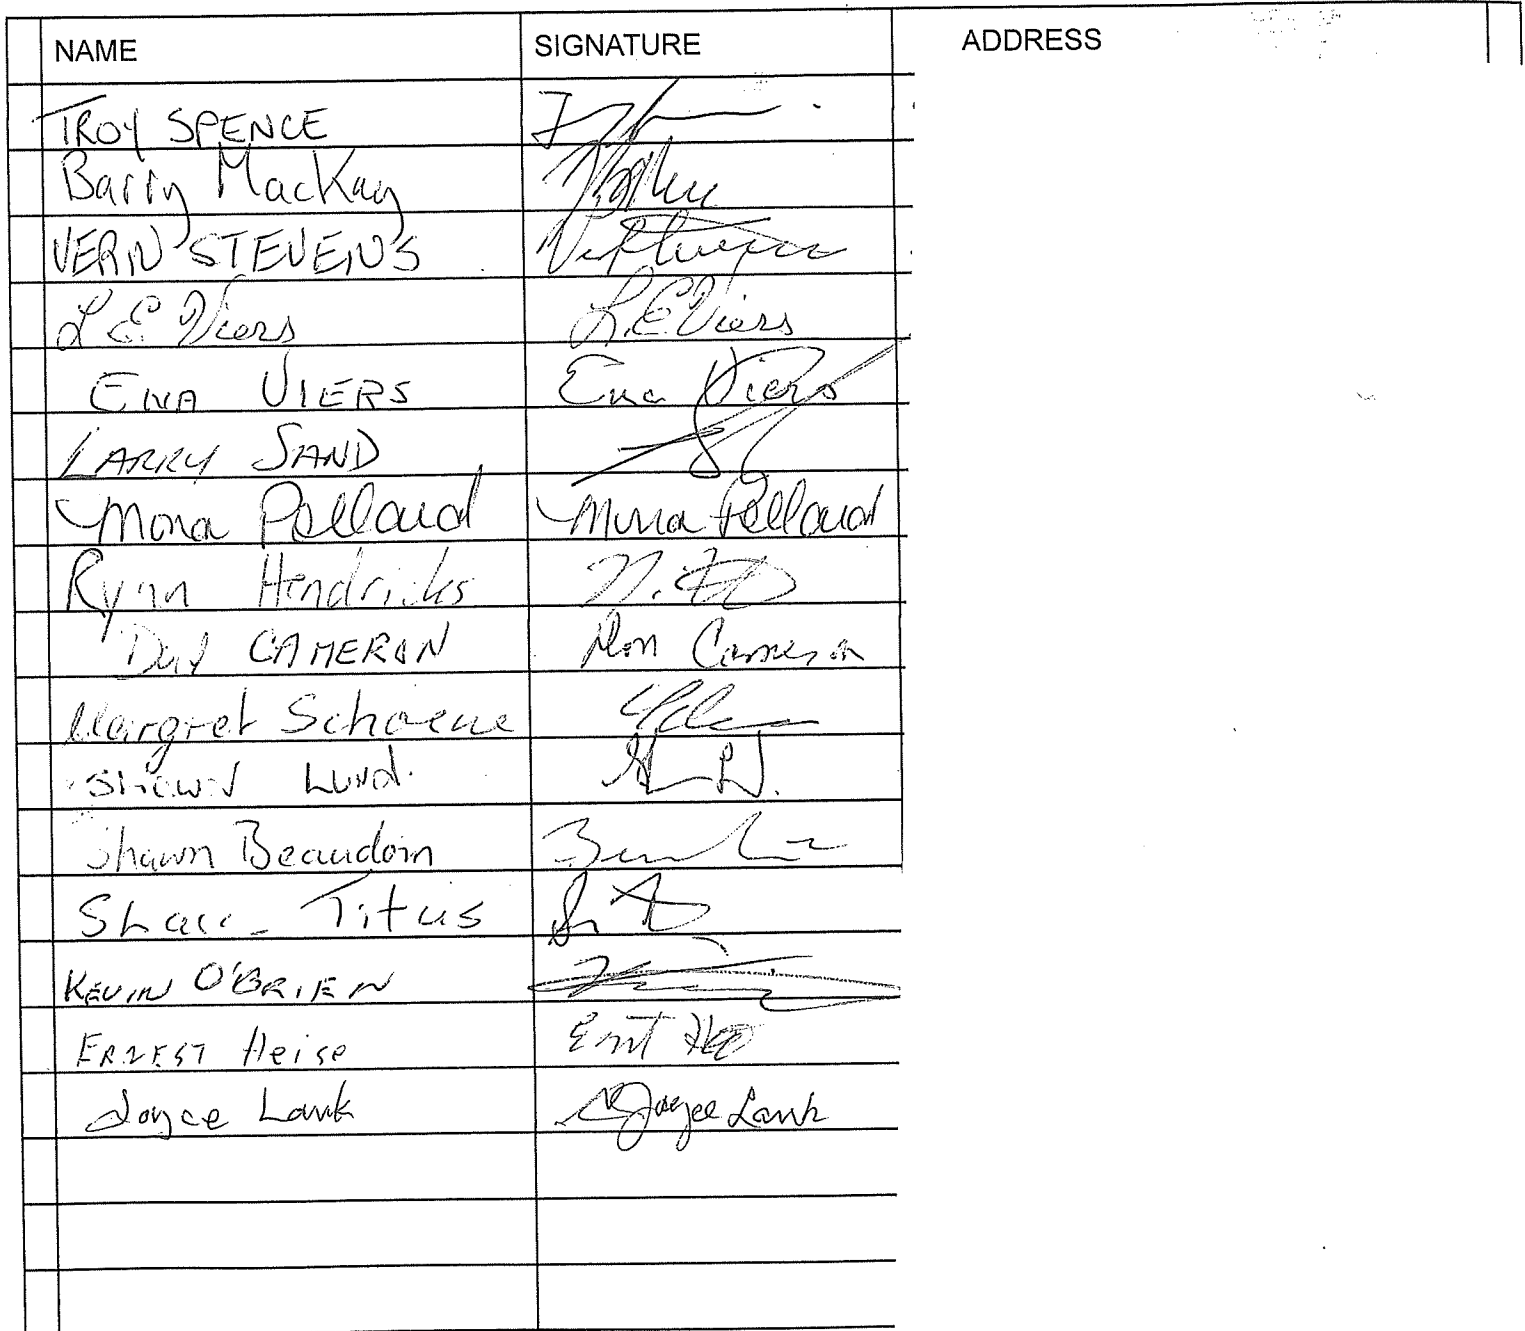 NAME SIGNATURE ADDRESS
TROY SPENCE
Barry MacKay
VERN STEVENS
L.E. Viers L.E Viers
ENA VIERS Ena Viers
LARRY SAND
Mona Pellaud Mona Pellaud
Rynn Hendricks
CAMERON Don Cameron
Margret Schoene
SHAWN LUND.
Shawn Beaudoin
Titus
KEVIN O'BRIEN
ERNEST Heise
Joyce Lank Joyce Lank